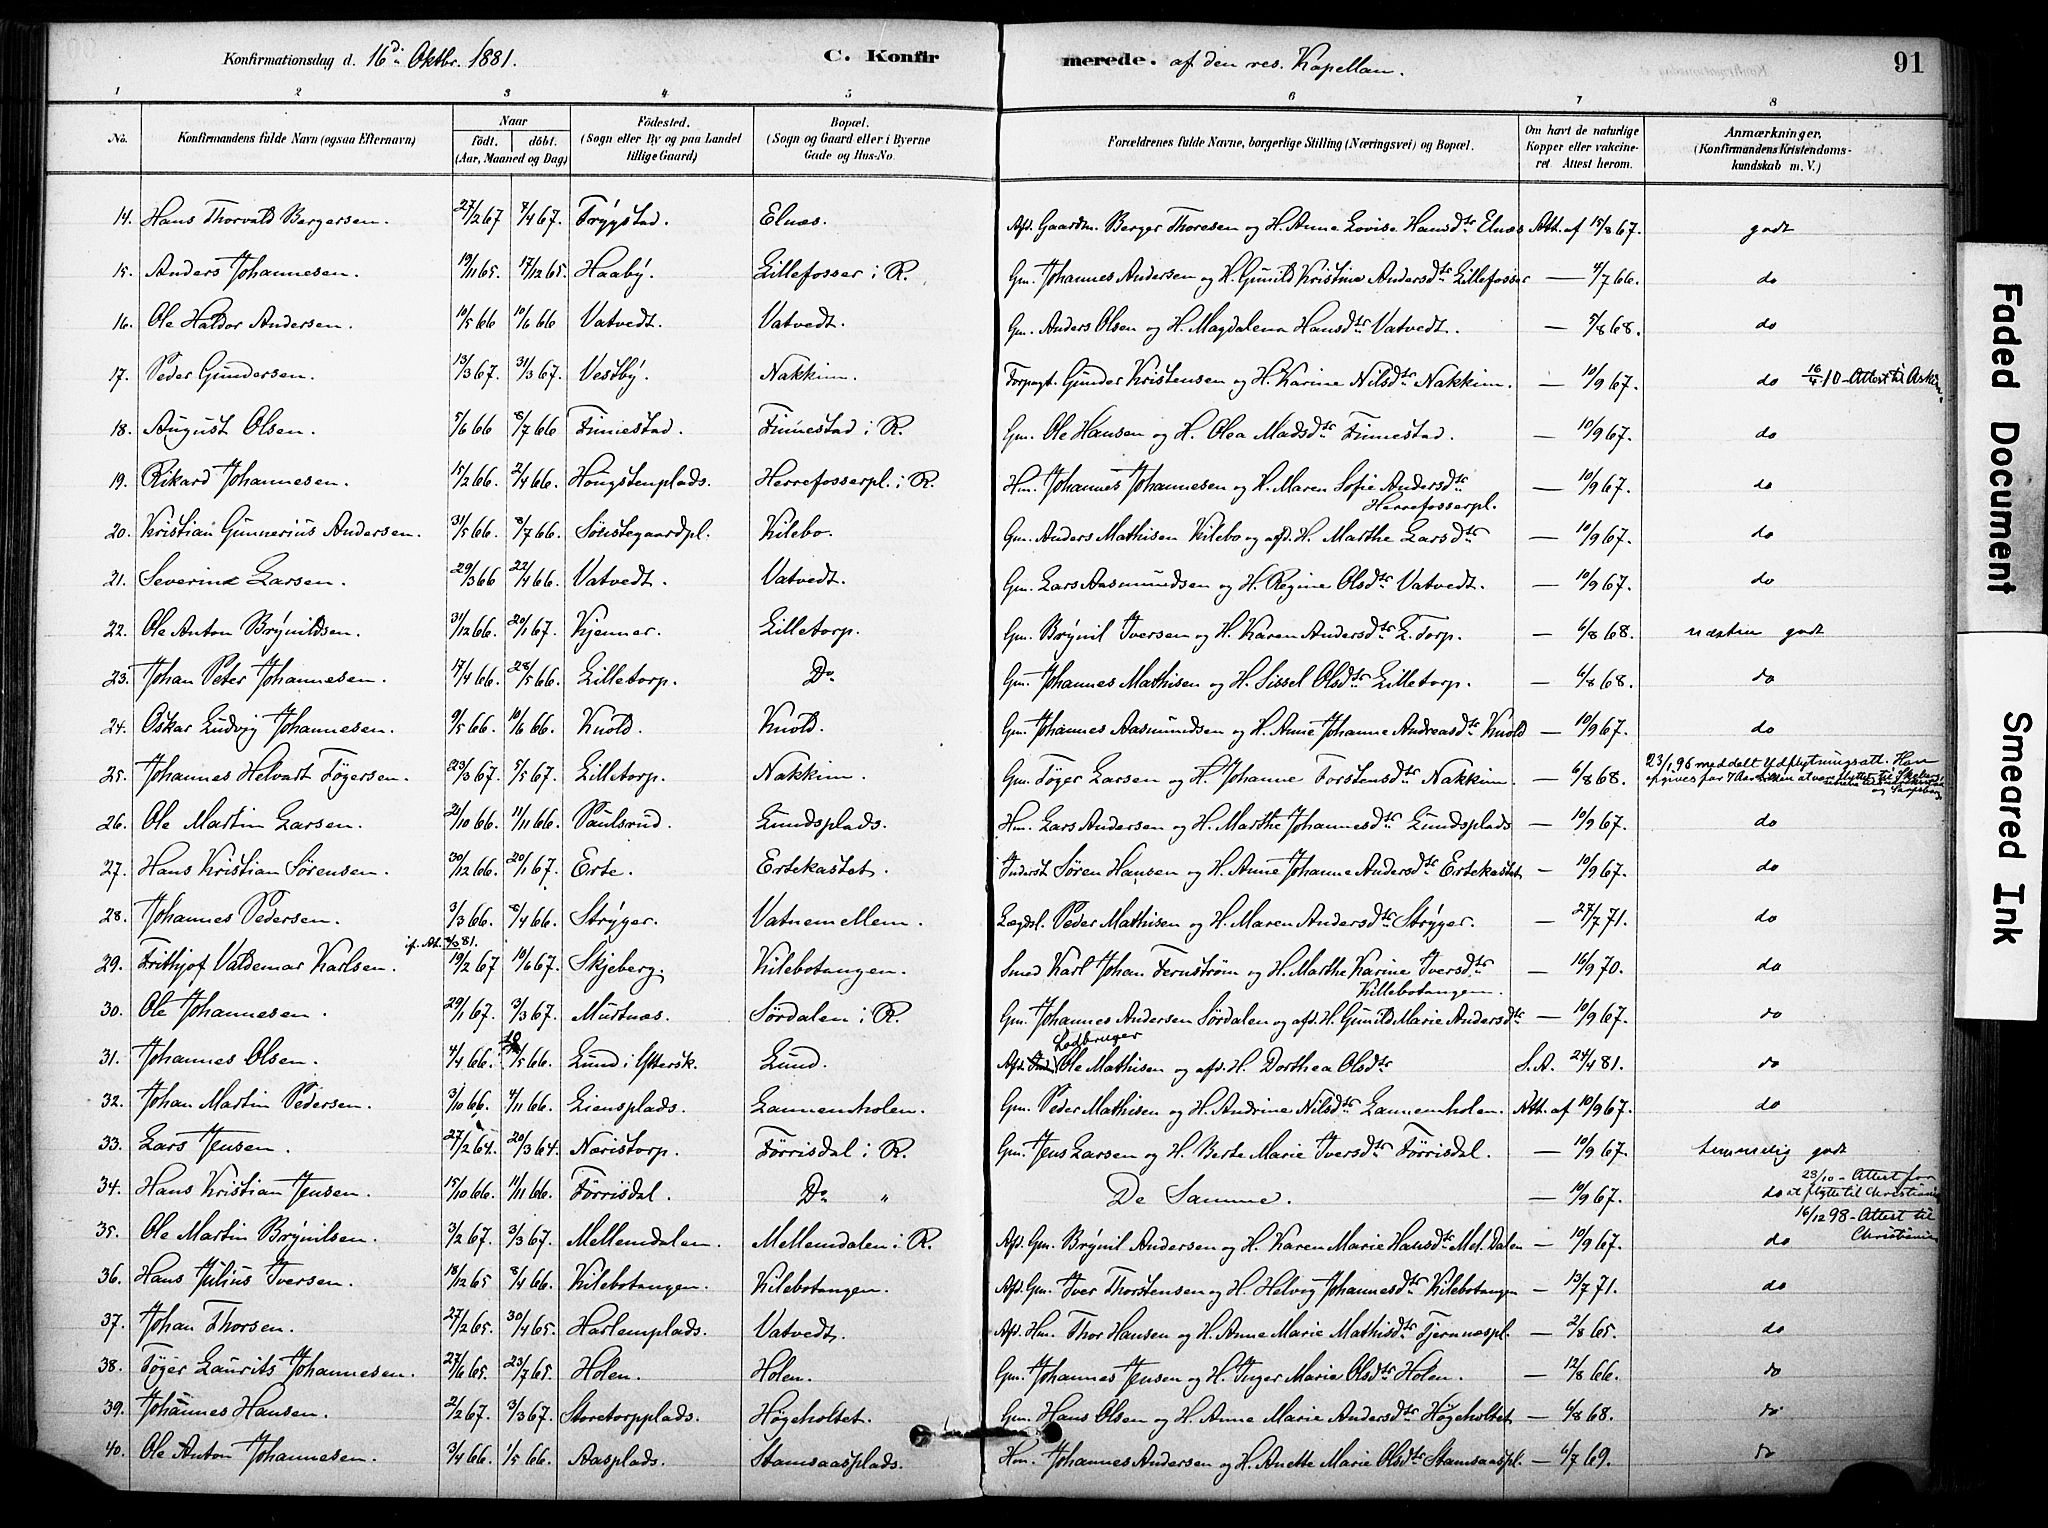 Konfirmationsdag d. 16de Oktbr. 1881. C. Konfirmerede. af den res. Kapellan. 91
1 2 3 4 5 6 7 8
No. Konfirmandens fulde Navn (ogsaa Efternavn) Naar födt. döbt. (Aar, Maaned og Dag) Födested. (Sogn eller By og paa Landet tillige Gaard) Bopæl. (Sogn og Gaard eller i Byerne Gade og Hus-No. Forældrenes fulde Navne, borgerlige Stilling (Næringsvei) og Bopæl. Om havt de naturlige Kopper eller vaccineret. Attest herom. Anmærkninger. (Konfirmandens Kristendomskundskab m. V.)
14. Hans Thorvald Bergersen. 27/2 67 7/4 67. Frygstad. Elnæs. Afd. Gaardm. Berger Thoresen og H. Anne Lovise Hansdtr Elnæs Att. af 15/8 67. godt
15. Anders Johannesen. 19/11 65. 17/12 65. Haaby. Lillefosser i R. Gm. Johannes Andersen og H. Gunild Kristine Andersdtr Lillefosser — 4/7 66. do
16. Ole Haldor Andersen. 10/5 66 10/6 66 Vatvedt. Vatvedt. Gm. Anders Olsen og H. Magdalena Hansdtr Vatvedt. — 5/8 68. do
17. Peder Gundersen. 13/3 67. 31/3 67. Vestby. Nakkim. Forpagt. Gunder Kristensen og H. Karine Nilsdtr Nakkim. — 10/9 67. do 16/4 10 - Attest til Askim.
18. August Olsen. 5/6 66 8/7 66 Finnestad. Finnestad i R. Gm. Ole Hansen og H. Olea Madsdtr Finnestad. — 10/9 67. do
19. Rikard Johannesen. 15/2 66. 2/4 66. Hougstenplads. Herrefosserpl. i R. Hm. Johannes Johannesen og H. Maren Sofie Andersdtr Herrefosserpl. — 10/9 67. do
20. Kristian Gunnerius Andersen. 31/5 66. 8/7 66. Sönstegaardpl. Kilebo. Gm. Anders Mathisen Kilebo og afd. H. Marthe Larsdtr — 10/9 67. do
21. Severin Larsen. 29/3 66 22/4 66. Vatvedt. Vatvedt. Gm. Lars Aasmundsen og H. Regine Olsdtr Vatvedt. — 10/9 67. do
22. Ole Anton Brynildsen. 31/12 66. 20/1 67. Kjenner. Lilletorp. Gm. Brynil Iversen og H. Karen Andersdtr L. Torp. — 6/8 68. næsten godt
23. Johan Peter Johannesen. 17/4 66. 28/5 66. Lilletorp. Do. Gm. Johannes Mathisen og H. Sissel Olsdtr Lilletorp. — 6/8 68. do
24. Oskar Ludvig Johannesen. 9/5 66. 10/6 66. Knold. Knold. Gm. Johannes Aasmundsen og H. Anne Johanne Andreasdtr Knold — 10/9 67. do
25. Johannes Helvart Fögersen. 23/3 67. 5/5 67. Lilletorp. Nakkim. Gm. Föger Larsen og H. Johanne Torstensdtr Nakkim. — 6/8 68. 23/1 96 meddelt Udflytningsatt. Han opgives for 7 Aar siden at være flyttet til og Sarpsborg
26. Ole Martin Larsen. 21/10 66. 11/11 66. Paulsrud. Lundsplads. Hm. Lars Andersen og H. Marthe Johannesdtr Lundsplads — 10/9 67. do
27. Hans Kristian Sörensen. 30/12 66. 20/1 67. Erte. Ertekastet. Inderst Sören Hansen og H. Anne Johanne Andersdtr Ertekastet — 10/9 67. do
28. Johannes Pedersen. 3/3 66. 8/4 66. Stryger. Vatnemellem. Lægdsl. Peder Mathisen og H. Maren Andersdtr Stryger. — 27/7 71. do
29. Frithjof Valdemar Karlsen. if. At. 4/10 81. 19/2 67 10/6 67. Skjeberg. Kilebotangen. Smed Karl Johan Fernström og H. Marthe Karine Iversdtr Killebotangen. — 16/9 70. do
30. Ole Johannesen. 29/1 67. 3/3 67. Murtnæs. Sördalen i R. Gm. Johannes Andersen Sördalen og afd. H. Gunild Marie Andersdtr — 10/9 67. do
31. Johannes Olsen. 4/4 66. 18/5 66. Lund i Yttersk. Lund. Afd. Lodbruger Ole Mathisen og afd. H. Dorthea Olsdtr S. A. 24/4 81. do
32. Johan Martin Pedersen. 3/10 66. 4/11 66. Liensplads. Lannemholen. Gm. Peder Mathisen og H. Andrine Nilsdtr Lannemholen. Att. af 10/9 67. do
33. Lars Jensen. 27/2 64. 20/3 64. Næristorp. Förrisdal i R. Gm. Jens Larsen og H. Berte Marie Iversdtr Förrisdal. — 10/9 67. temmelig godt
34. Hans Kristian Jensen. 15/10 66. 11/11 66. Förrisdal. Do. " De Samme. — 10/9 67. do 23/10 - Attest for at flytte til Christiania
35. Ole Martin Brynilsen. 3/2 67. 3/3 67. Mellemdalen. Mellemdalen i R. Afd. Gm. Brynil Andersen og H. Karen Marie Hansdtr Mel. Dalen — 10/9 67. do 16/12 98 - Attest til Christiania
36. Hans Julius Iversen. 18/12 65 8/4 66. Kilebotangen. Kilebotangen. Afd. Gm. Iver Thorstensen og H. Helvig Johannesdtr Kilebotangen — 13/7 71. do
37. Johan Thorsen. 27/2 65. 30/4 65. Harlemplads. Vatvedt. Afd. Hm. Thor Hansen og H. Anne Marie Mathisdtr Tjernnæspl. — 2/8 65. do
38. Föger Laurits Johannesen. 27/6 65. 23/7 65. Holen. Holen. Gm. Johannes Jensen og H. Inger Marie Olsdtr Holen. — 12/8 66. do
39. Johannes Hansen. 2/2 67. 3/3 67. Storetorpplads. Högeholtet. Gm. Hans Olsen og H. Anne Marie Andersdtr Högeholtet — 6/8 68. do
40. Ole Anton Johannesen. 3/4 66. 1/5 66. Aasplads. Stamsaasplads. Hm. Johannes Andersen og H. Anette Marie Olsdtr Stamsaaspl. — 6/7 69. do
Faded Document
Smeared Ink